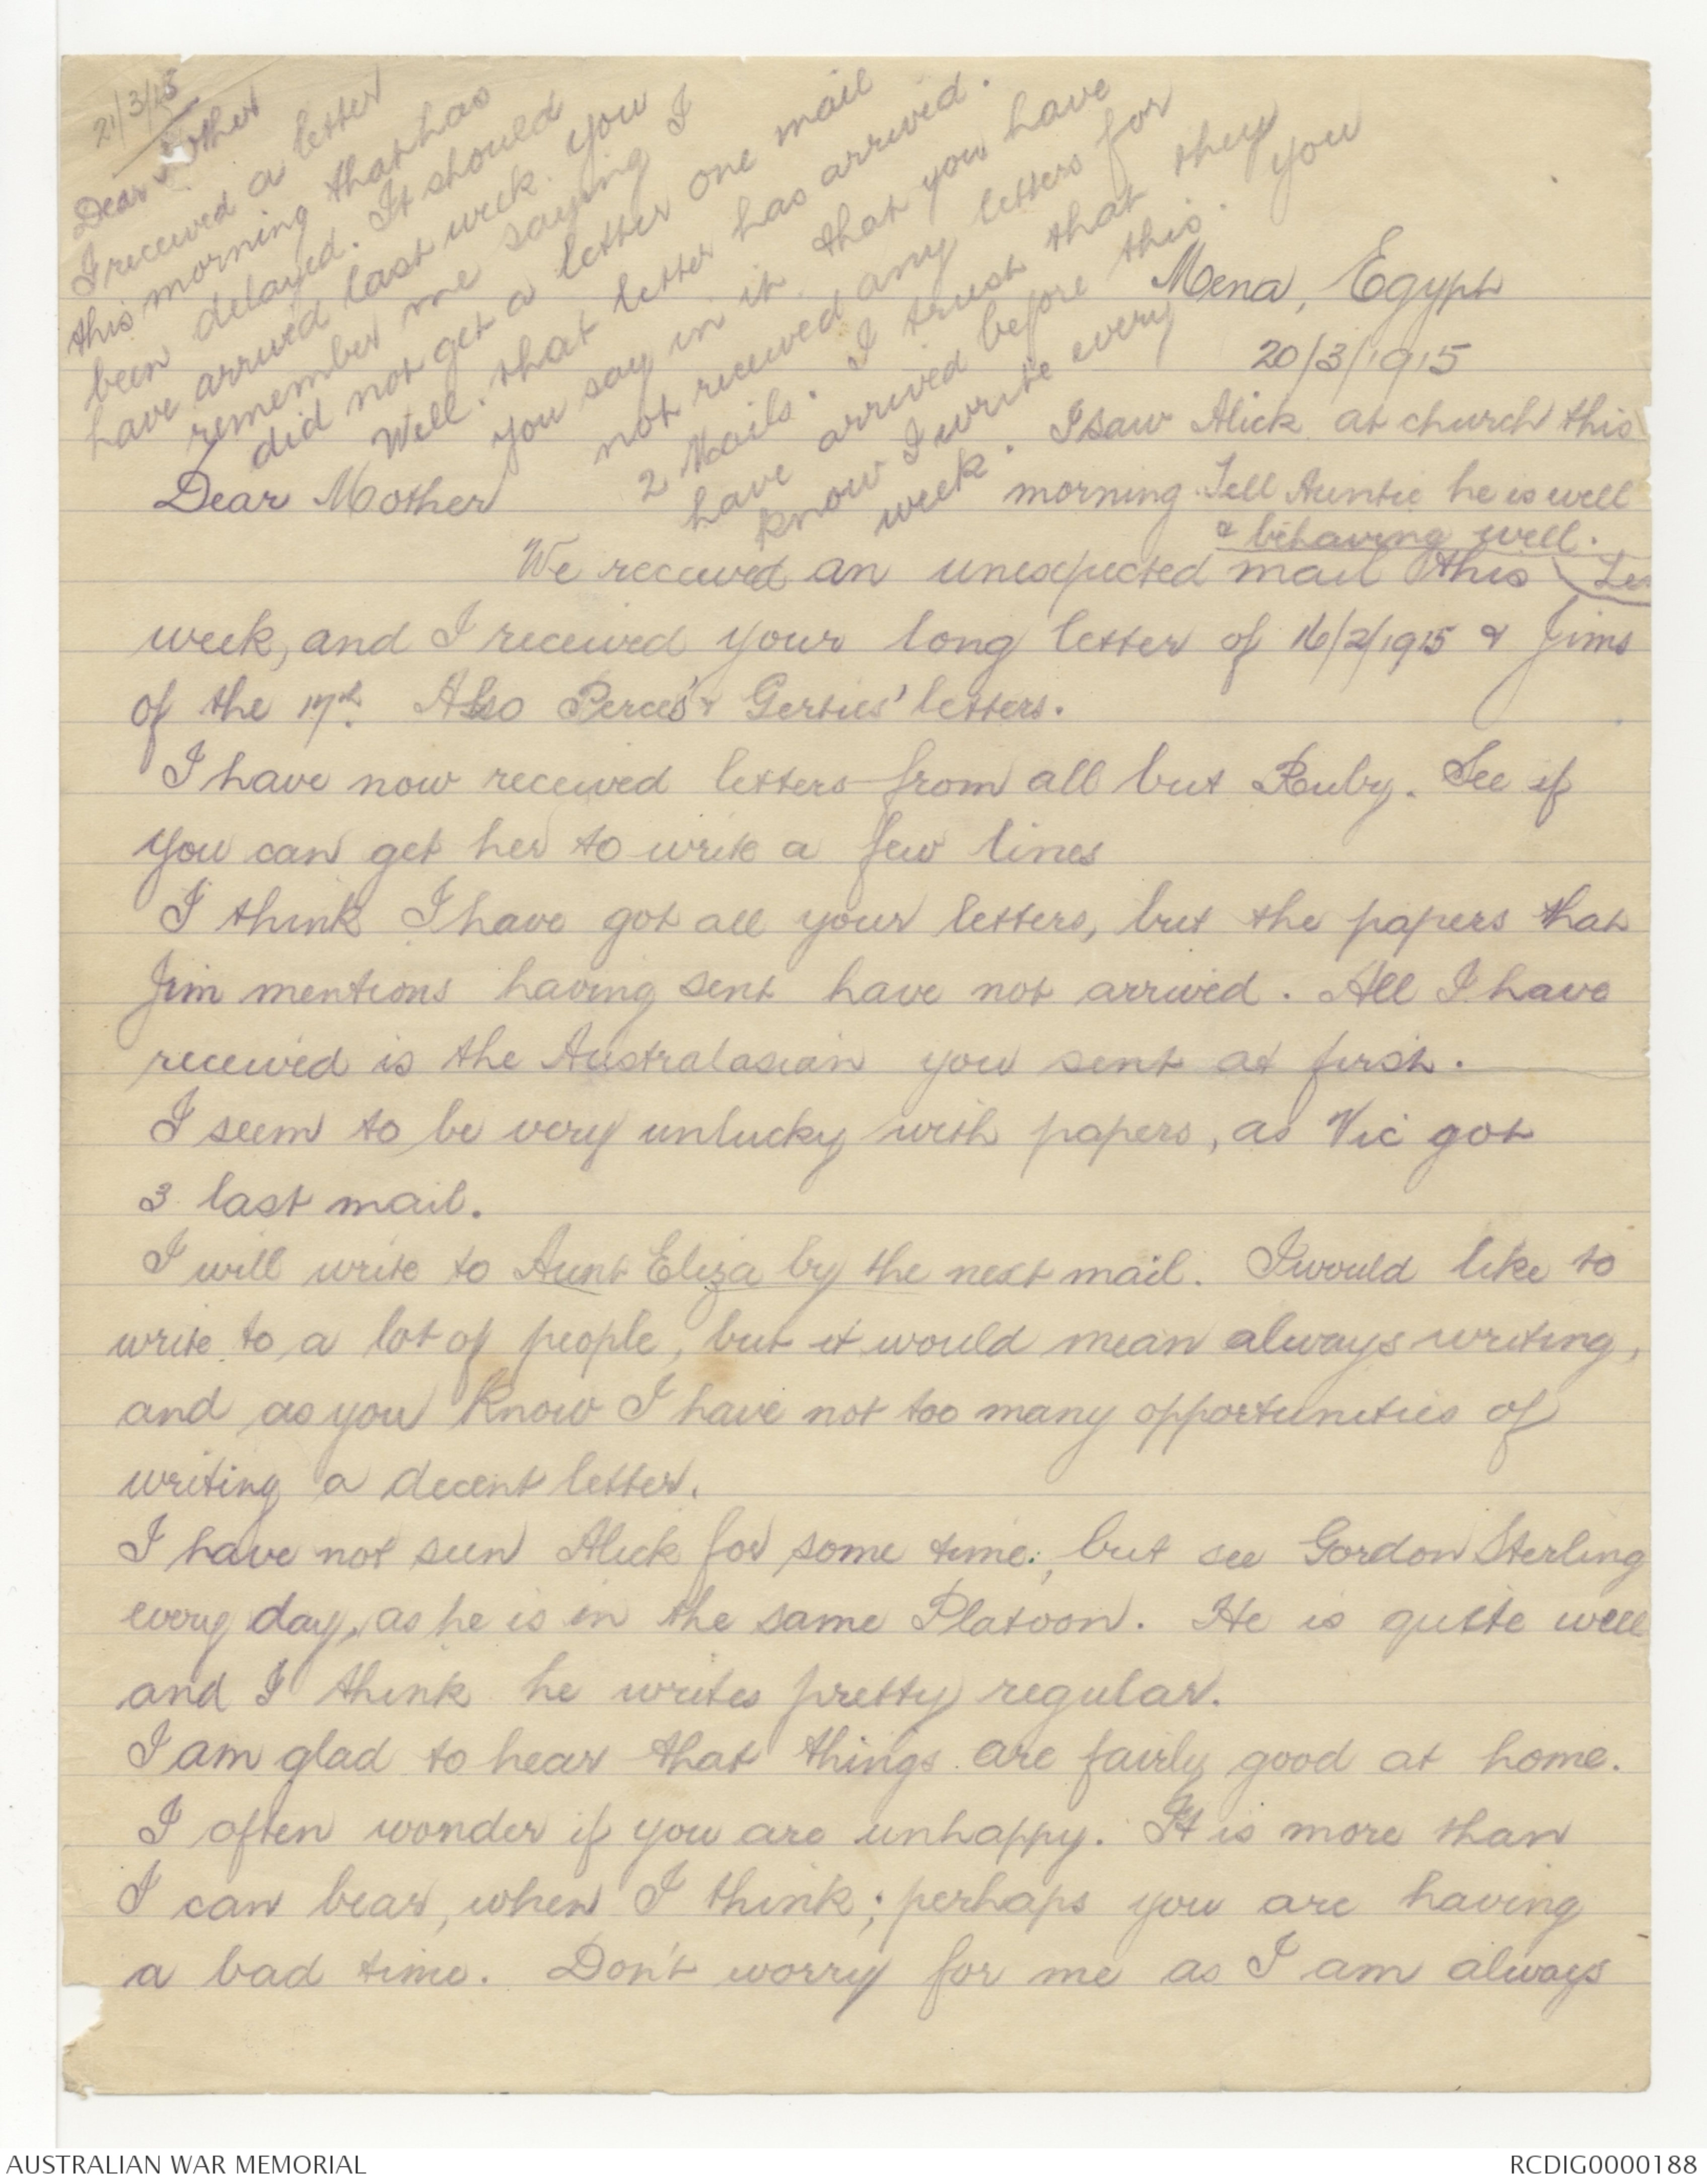 21/3/15
Dear Mother
I received a letter
this morning that has
been delayed. It should
have arrived last week. You
remember me saying I
did not get a letter one mail
Well. that letter has arrived.
you say in it that you have
not received any letters for
2 Mails. I trust that they
have arrived before this. you
know I write every
week. I saw Alick at church this
morning. Tell Auntie he is well
& behaving well.
Les
Mena, Egypt
20/3/1915
Dear Mother
We received an unexpected mail this
week, and I received your long letter of 16/2/1915 & Jims
of the 17th. Also Perce's & Gerties' letters.
I have now received letters from all but Ruby. See if
you can get her to write a few lines
I think I have got all your letters, but the papers that
Jim mentions having sent have not arrived. All I have
received is the Australasian you sent at first.
I seem to be very unlucky with papers, as Vic got
3 last mail.
I will write to Aunt Eliza by the next mail. I would like to
write to a lot of people, but it would mean always writing,
and as you know I have not too many opportunities of
writing a decent letter.
I have not seen Alick for some time, but see Gordon Sterling
every day, as he is in the same Platoon. He is quite well
and I think he writes pretty regular.
I am glad to hear that things are fairly good at home.
I often wonder if you are unhappy. It is more than
I can bear, when I think; perhaps you are having
a bad time. Don't worry for me as I am always
AUSTRALIAN WAR MEMORIAL
RCDIG0000188